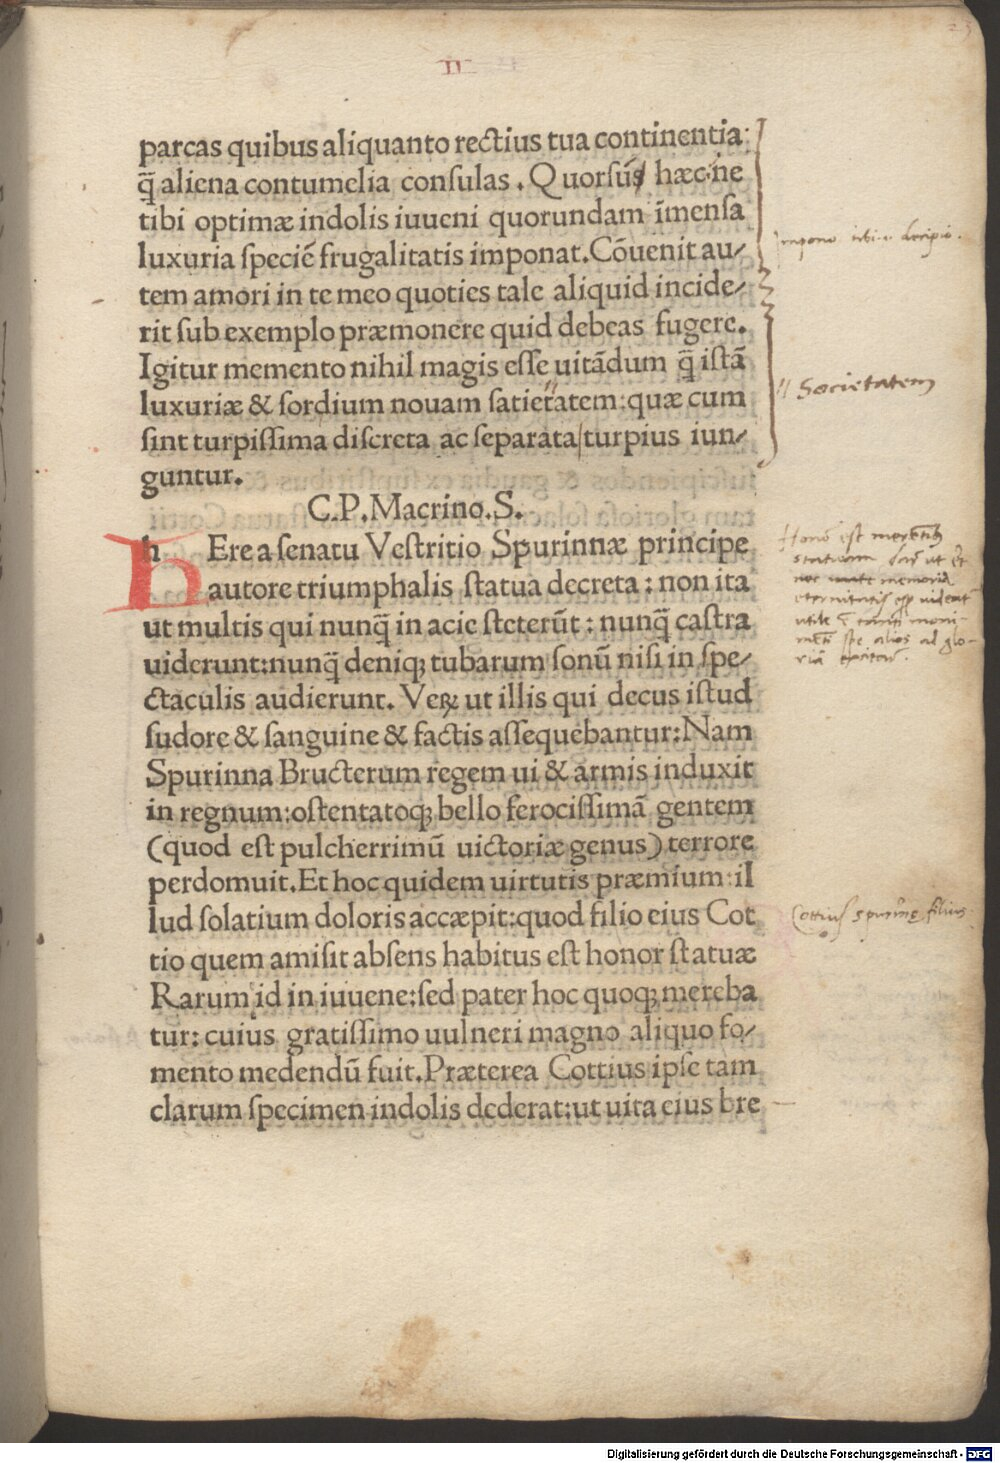 II
parcas quibus aliquanto rectius tua continentia:
q̄ aliena contumelia consulas. Quorsũs hæc:ne
tibi optimæ indolis iuueni quorundam ĩmensa
luxuria speciẽ frugalitatis imponat.Cõuenit au/
tem amori in te meo quoties tale aliquid incide/
rit sub exemplo præmonere quid debeas fugere.
Igitur memento nihil magis esse uitãdum q̄ istã
luxuriæ & sordium nouam satietatem:quæ cum
sint turpissima discreta ac separata/turpius iun/
guntur.
C.P.Macrino.S.
h Ere a senatu Vestritio Spurinnæ principe
autore triumphalis statua decreta: non ita
ut multis qui nunq̄ in acie steterũt: nunq̄ castra
uiderunt:nunq̄ deniqꝫ tubarum sonũ nisi in spe/
ctaculis audierunt. Veꝝ ut illis qui decus istud
sudore & sanguine & factis assequebantur:Nam
Spurinna Bructerum regem ui & armis induxit
in regnum:ostentatoqꝫ bello ferocissimã gentem
(quod est pulcherrimũ uictoriæ genus) terrore
perdomuit.Et hoc quidem uirtutis præmium:il
lud solatium doloris accæpit:quod filio eius Cot
tio quem amisit absens habitus est honor statuæ
Rarum id in iuuene:sed pater hoc quoqꝫ mereba
tur: cuius gratissimo uulneri magno aliquo fo/
mento medendũ fuit.Præterea Cottius ipse tam
clarum specimen indolis dederat:ut uita eius bre
impono tibi .i. decipio.
" Societatem
Cottius spurine filius